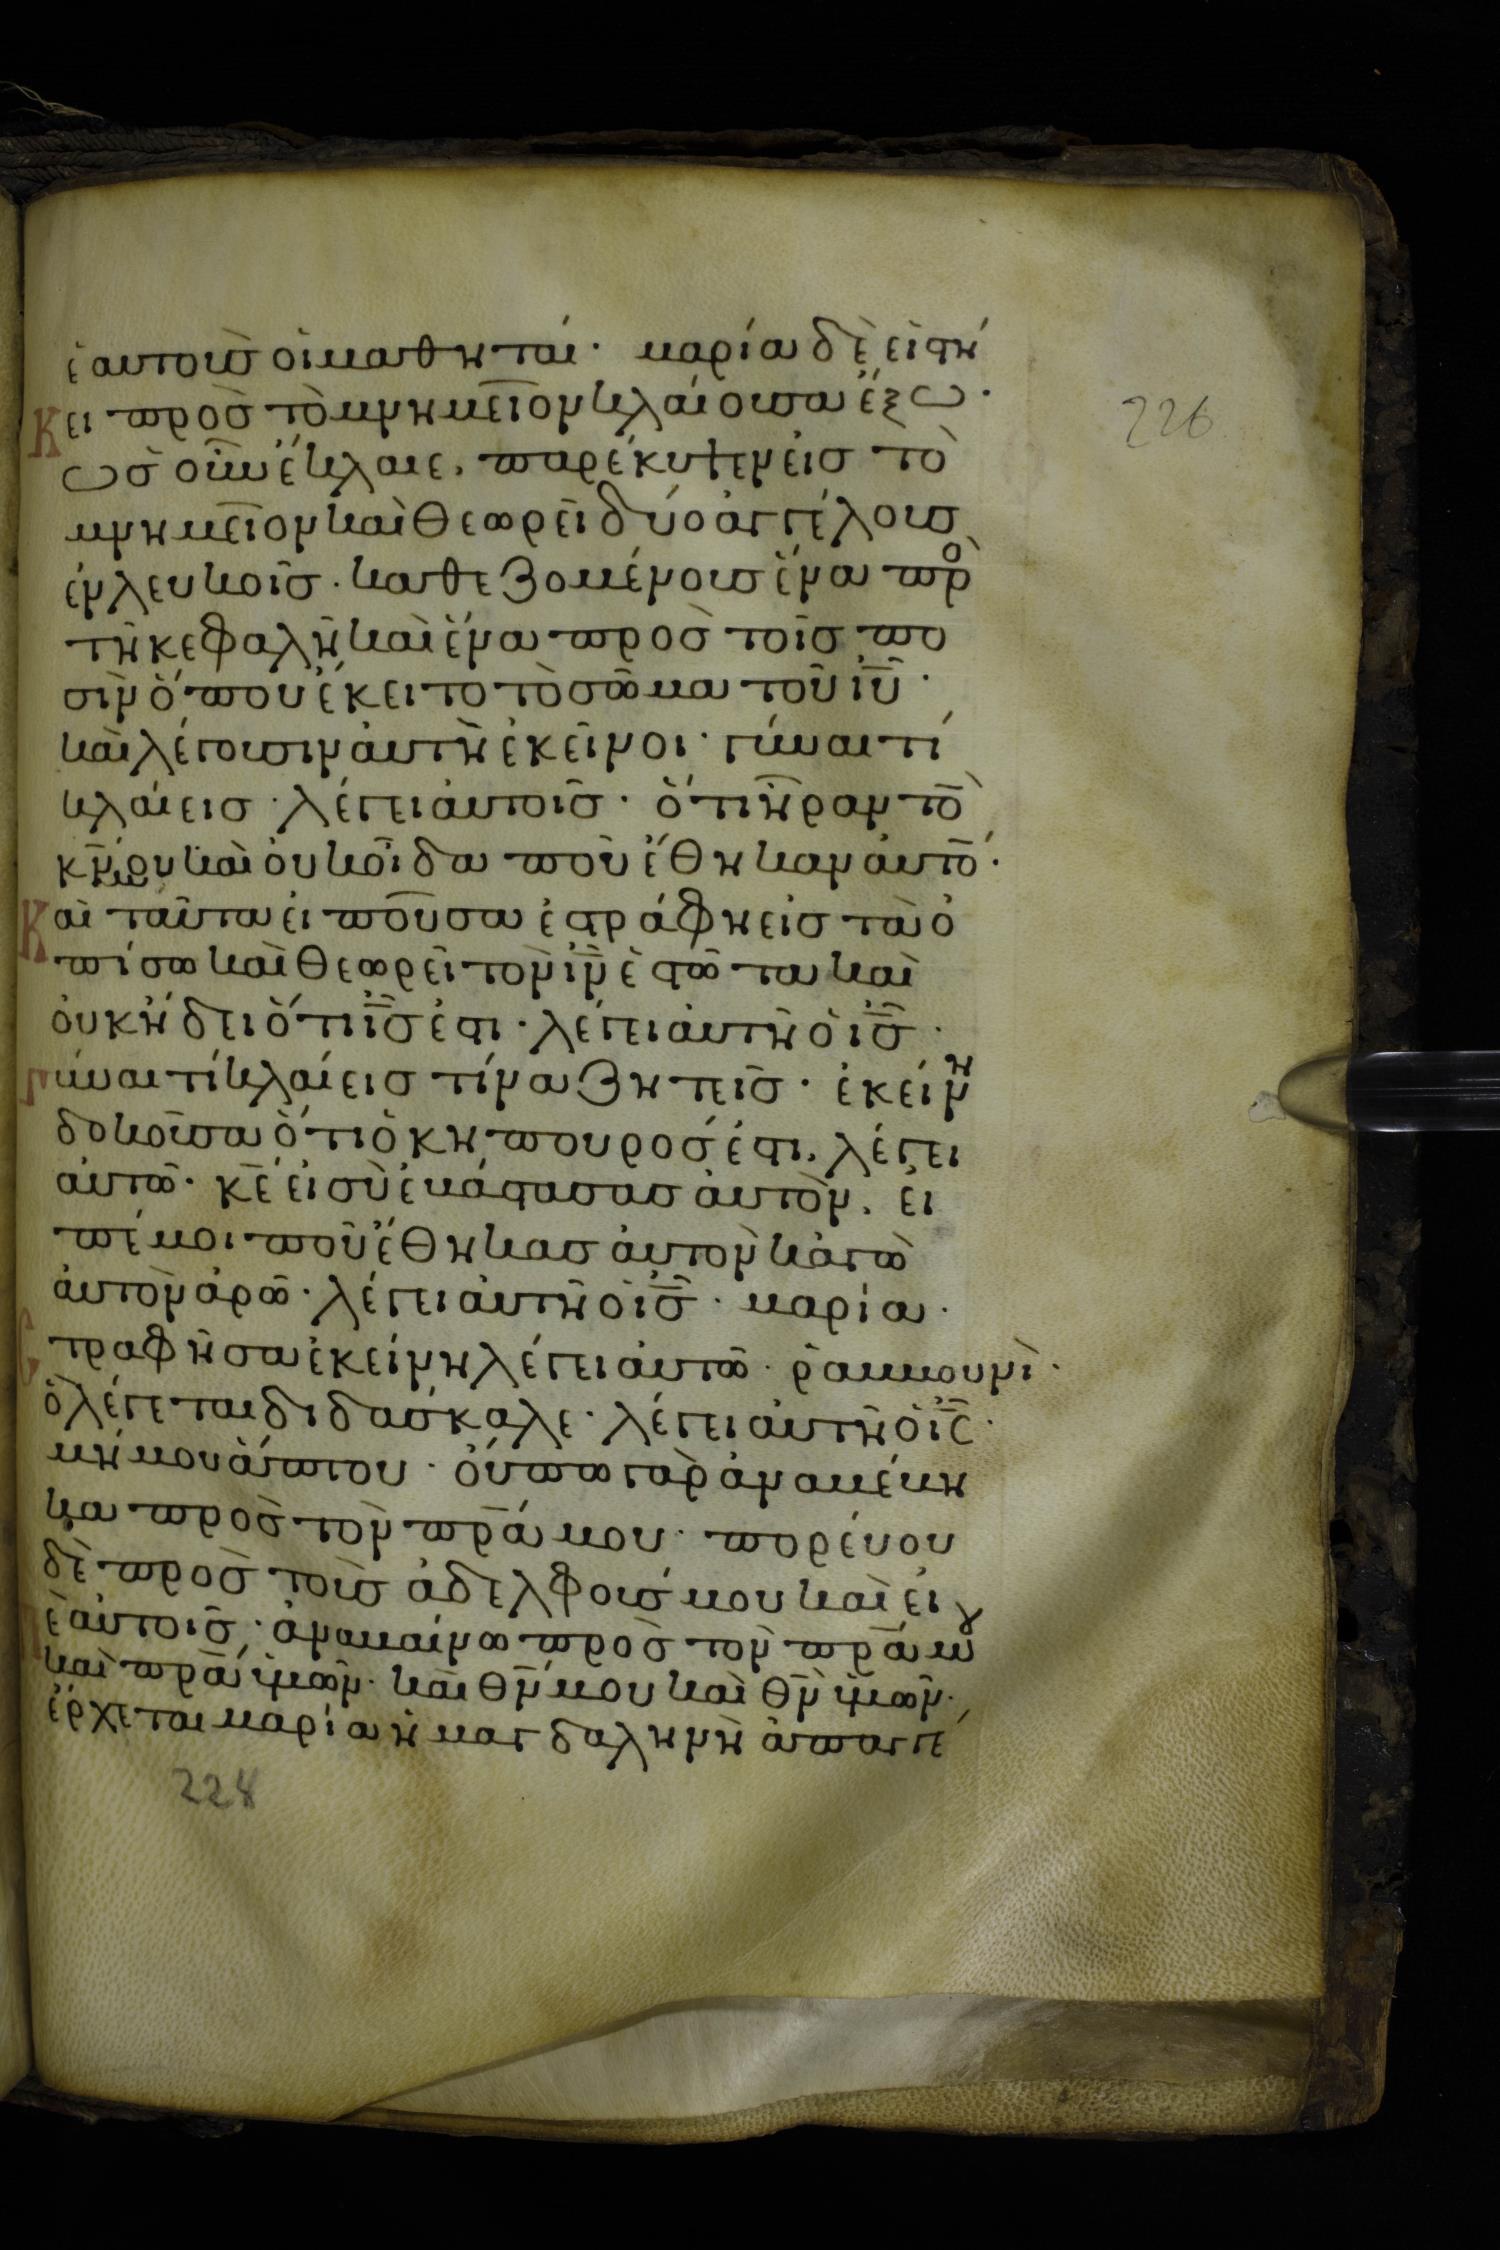 ἑαυτοὺς οἱ μαθηταί· μαρία δὲ εἱστή
κει πρὸς τὸ μνημεῖον κλαίουσα ἔξω·
ὡς οὖν ἔκλαιε, παρέκυψεν εἰς τὸ
μνημεῖον καὶ θεωρεῖ δύο ἀγγέλους
ἐν λευκοῖς· καθεζομένους ἕνα πρὸ
τῆ κεφαλῆ καὶ ἕνα πρὸς τοῖς πο
σὶν ὅπου ἔκειτο τὸ σῶμα τοῦ ιῦ·
καὶ λέγουσιν αὐτῆ ἐκεῖνοι· γύναι τί
κλαίεις· λέγει αὐτοῖς· ὅτι ἦραν τὸ
κν μου καὶ οὐκ οἶδα ποῦ ἔθηκαν αὐτό·
Καὶ ταῦτα εἰποῦσα ἐστράφη εἰς τὰ ὀ
πίσω καὶ θεωρεῖ τὸν ιν ἑστῶτα καὶ
οὐκ ἤδει ὅτι ις ἐστι· λέγει αὐτῆ ὁ ις·
Γύναι τί κλαίεις τίνα ζητεῖς· ἐκείνη
δοκοῦσα ὅτι ὁ κηπουρός ἐστι, λέγει
αὐτῶ· κε εἰ σὺ ἐβάστασας αὐτὸν, εἰ
πέ μοι ποῦ ἔθηκας αὐτὸν κἀγὼ
αὐτὸν ἀρῶ· λέγει αὐτῆ ὁ ις· μαρία·
Στραφῆσα ἐκείνη λέγει αὐτῶ· ῥαββουνὶ·
ὃ λέγεται διδάσκαλε· λέγει αὐτῆ ὁ ις·
μή μου ἅπτου· οὔπω γὰρ ἀναβέβη
κα πρὸς τὸν πρα μου· πορεύου
δὲ πρὸς τοὺς ἀδελφούς μου καὶ εἰ
πὲ αὐτοῖς· ἀναβαίνω πρὸς τὸν πρα μου
καὶ πρα ὑμῶν· καὶ θν μου καὶ θν ὑμῶν·
ἔρχεται μαρία ἡ μαγδαληνὴ ἀπαγγέ
226
224